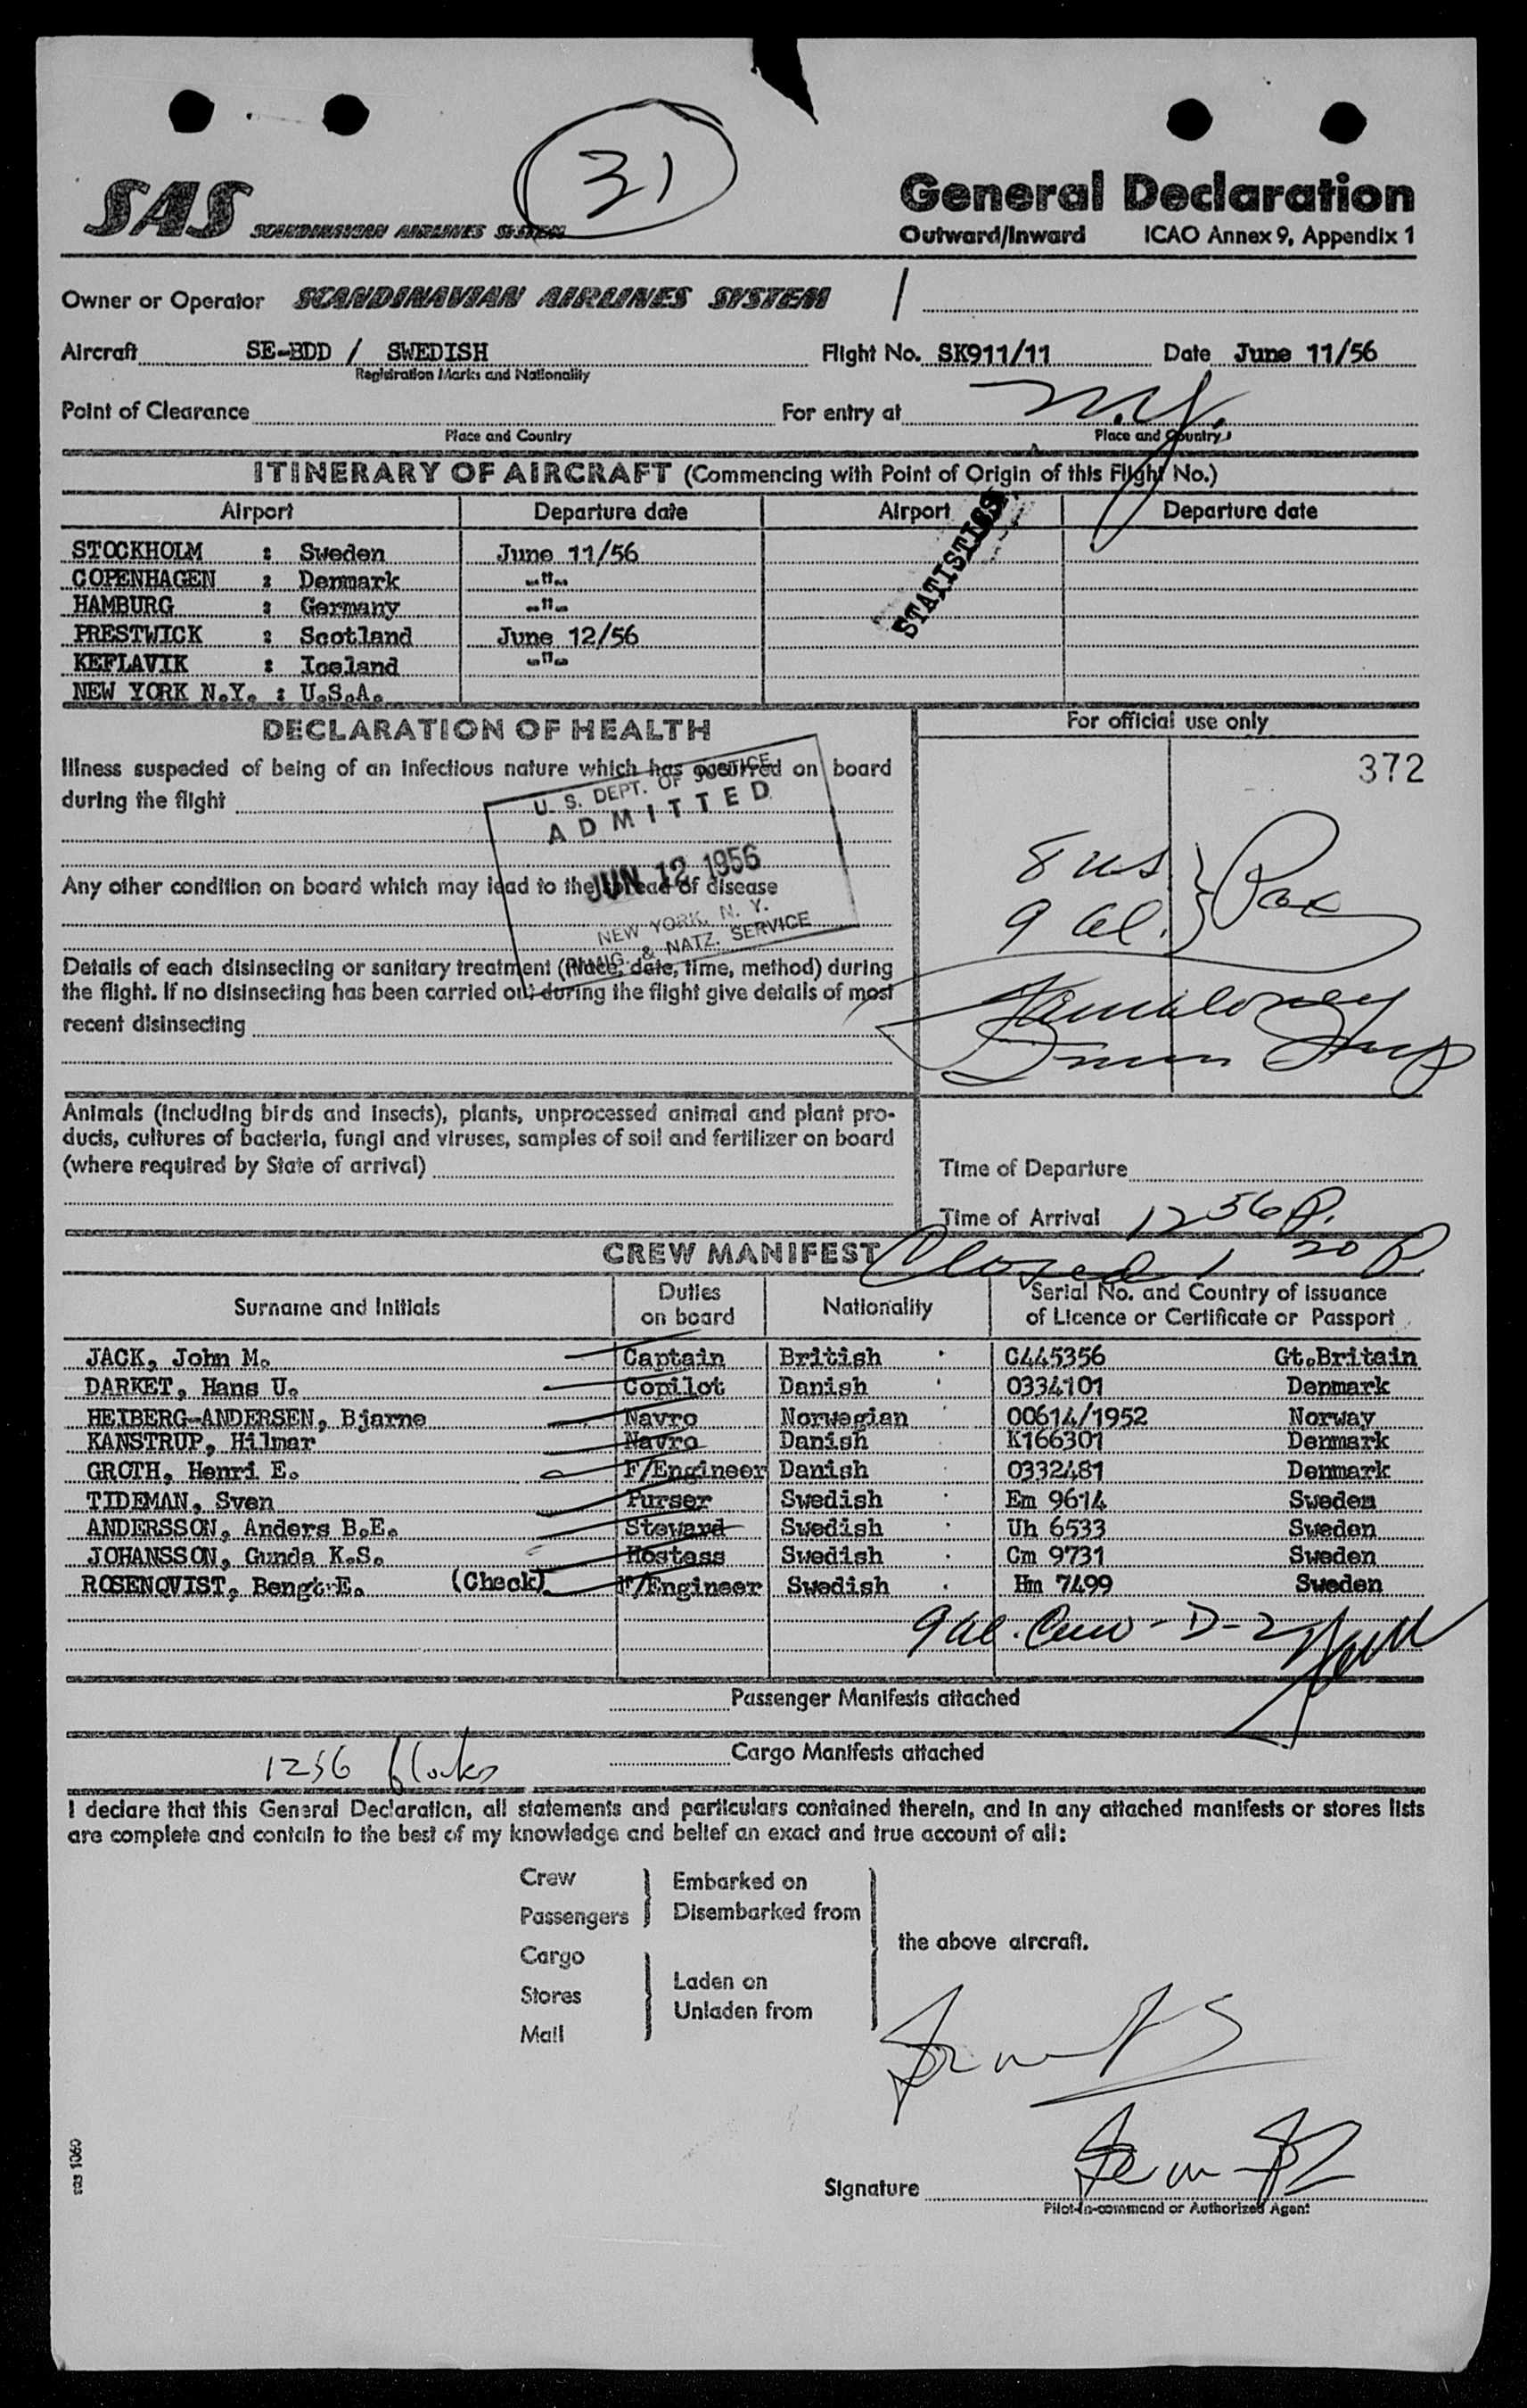 31
SAS SCANDINAVIAN AIRLINES SYSTEM
General Declaration
Outward/Inward ICAO Annex 9, Appendix 1
Owner or Operator SCANDINAVIAN AIRLINES SYSTEM
Aircraft SE-BDD / SWEDISH Flight No. SK911/11 Date June 11/56
Registration Marks and Nationality
Point of Clearance For entry at N.Y.
Place and Country Place and Country
ITINERARY OF AIRCRAFT (Commencing with Point of Origin of this Flight No.)
Airport Departure date Airport Departure date
STOCKHOLM : Sweden June 11/56
COPENHAGEN : Denmark -"-
HAMBURG : Germany -"-
PRESTWICK : Scotland June 12/56
KEFLAVIK : Iceland -"-
NEW YORK N.Y. : U.S.A.
STATISTICS
DECLARATION OF HEALTH
For official use only
372
Illness suspected of being of an infectious nature which has occurred on board
during the flight
U. S. DEPT. OF JUSTICE
ADMITTED
JUN 12 1956
NEW YORK, N. Y.
IMMIG. & NATZ. SERVICE
Any other condition on board which may lead to the spread of disease
8 us
9 al. } Pax
Details of each disinsecting or sanitary treatment (Place, date, time, method) during
the flight. If no disinsecting has been carried out during the flight give details of most
recent disinsecting
Animals (including birds and insects), plants, unprocessed animal and plant pro-
ducts, cultures of bacteria, fungi and viruses, samples of soil and fertilizer on board
(where required by State of arrival)
Time of Departure
Time of Arrival 12 56 P.
Closed 1 20 P.
CREW MANIFEST
Surname and Initials Duties on board Nationality Serial No. and Country of Issuance of Licence or Certificate or Passport
JACK, John M. Captain British C445356 Gt.Britain
DARKET, Hans U. Copilot Danish 0334101 Denmark
HEIBERG-ANDERSEN, Bjarne Navro Norwegian 00614/1952 Norway
KANSTRUP, Hilmar Navro Danish K166301 Denmark
GROTH, Henri E. F/Engineer Danish 0332481 Denmark
TIDEMAN, Sven Purser Swedish Em 9614 Sweden
ANDERSSON, Anders B.E. Steward Swedish Uh 6533 Sweden
JOHANSSON, Gunda K.S. Hostess Swedish Cm 9731 Sweden
ROSENQVIST, Bengt E. (Check) F/Engineer Swedish Hm 7499 Sweden
9 al. Crew - D-2
Passenger Manifests attached
Cargo Manifests attached
1256 blocks
I declare that this General Declaration, all statements and particulars contained therein, and in any attached manifests or stores lists
are complete and contain to the best of my knowledge and belief an exact and true account of all:
Crew
Passengers
Embarked on
Disembarked from
Cargo
Stores
Mail
Laden on
Unladen from
the above aircraft.
Signature
Pilot-in-command or Authorized Agent
sas 1060